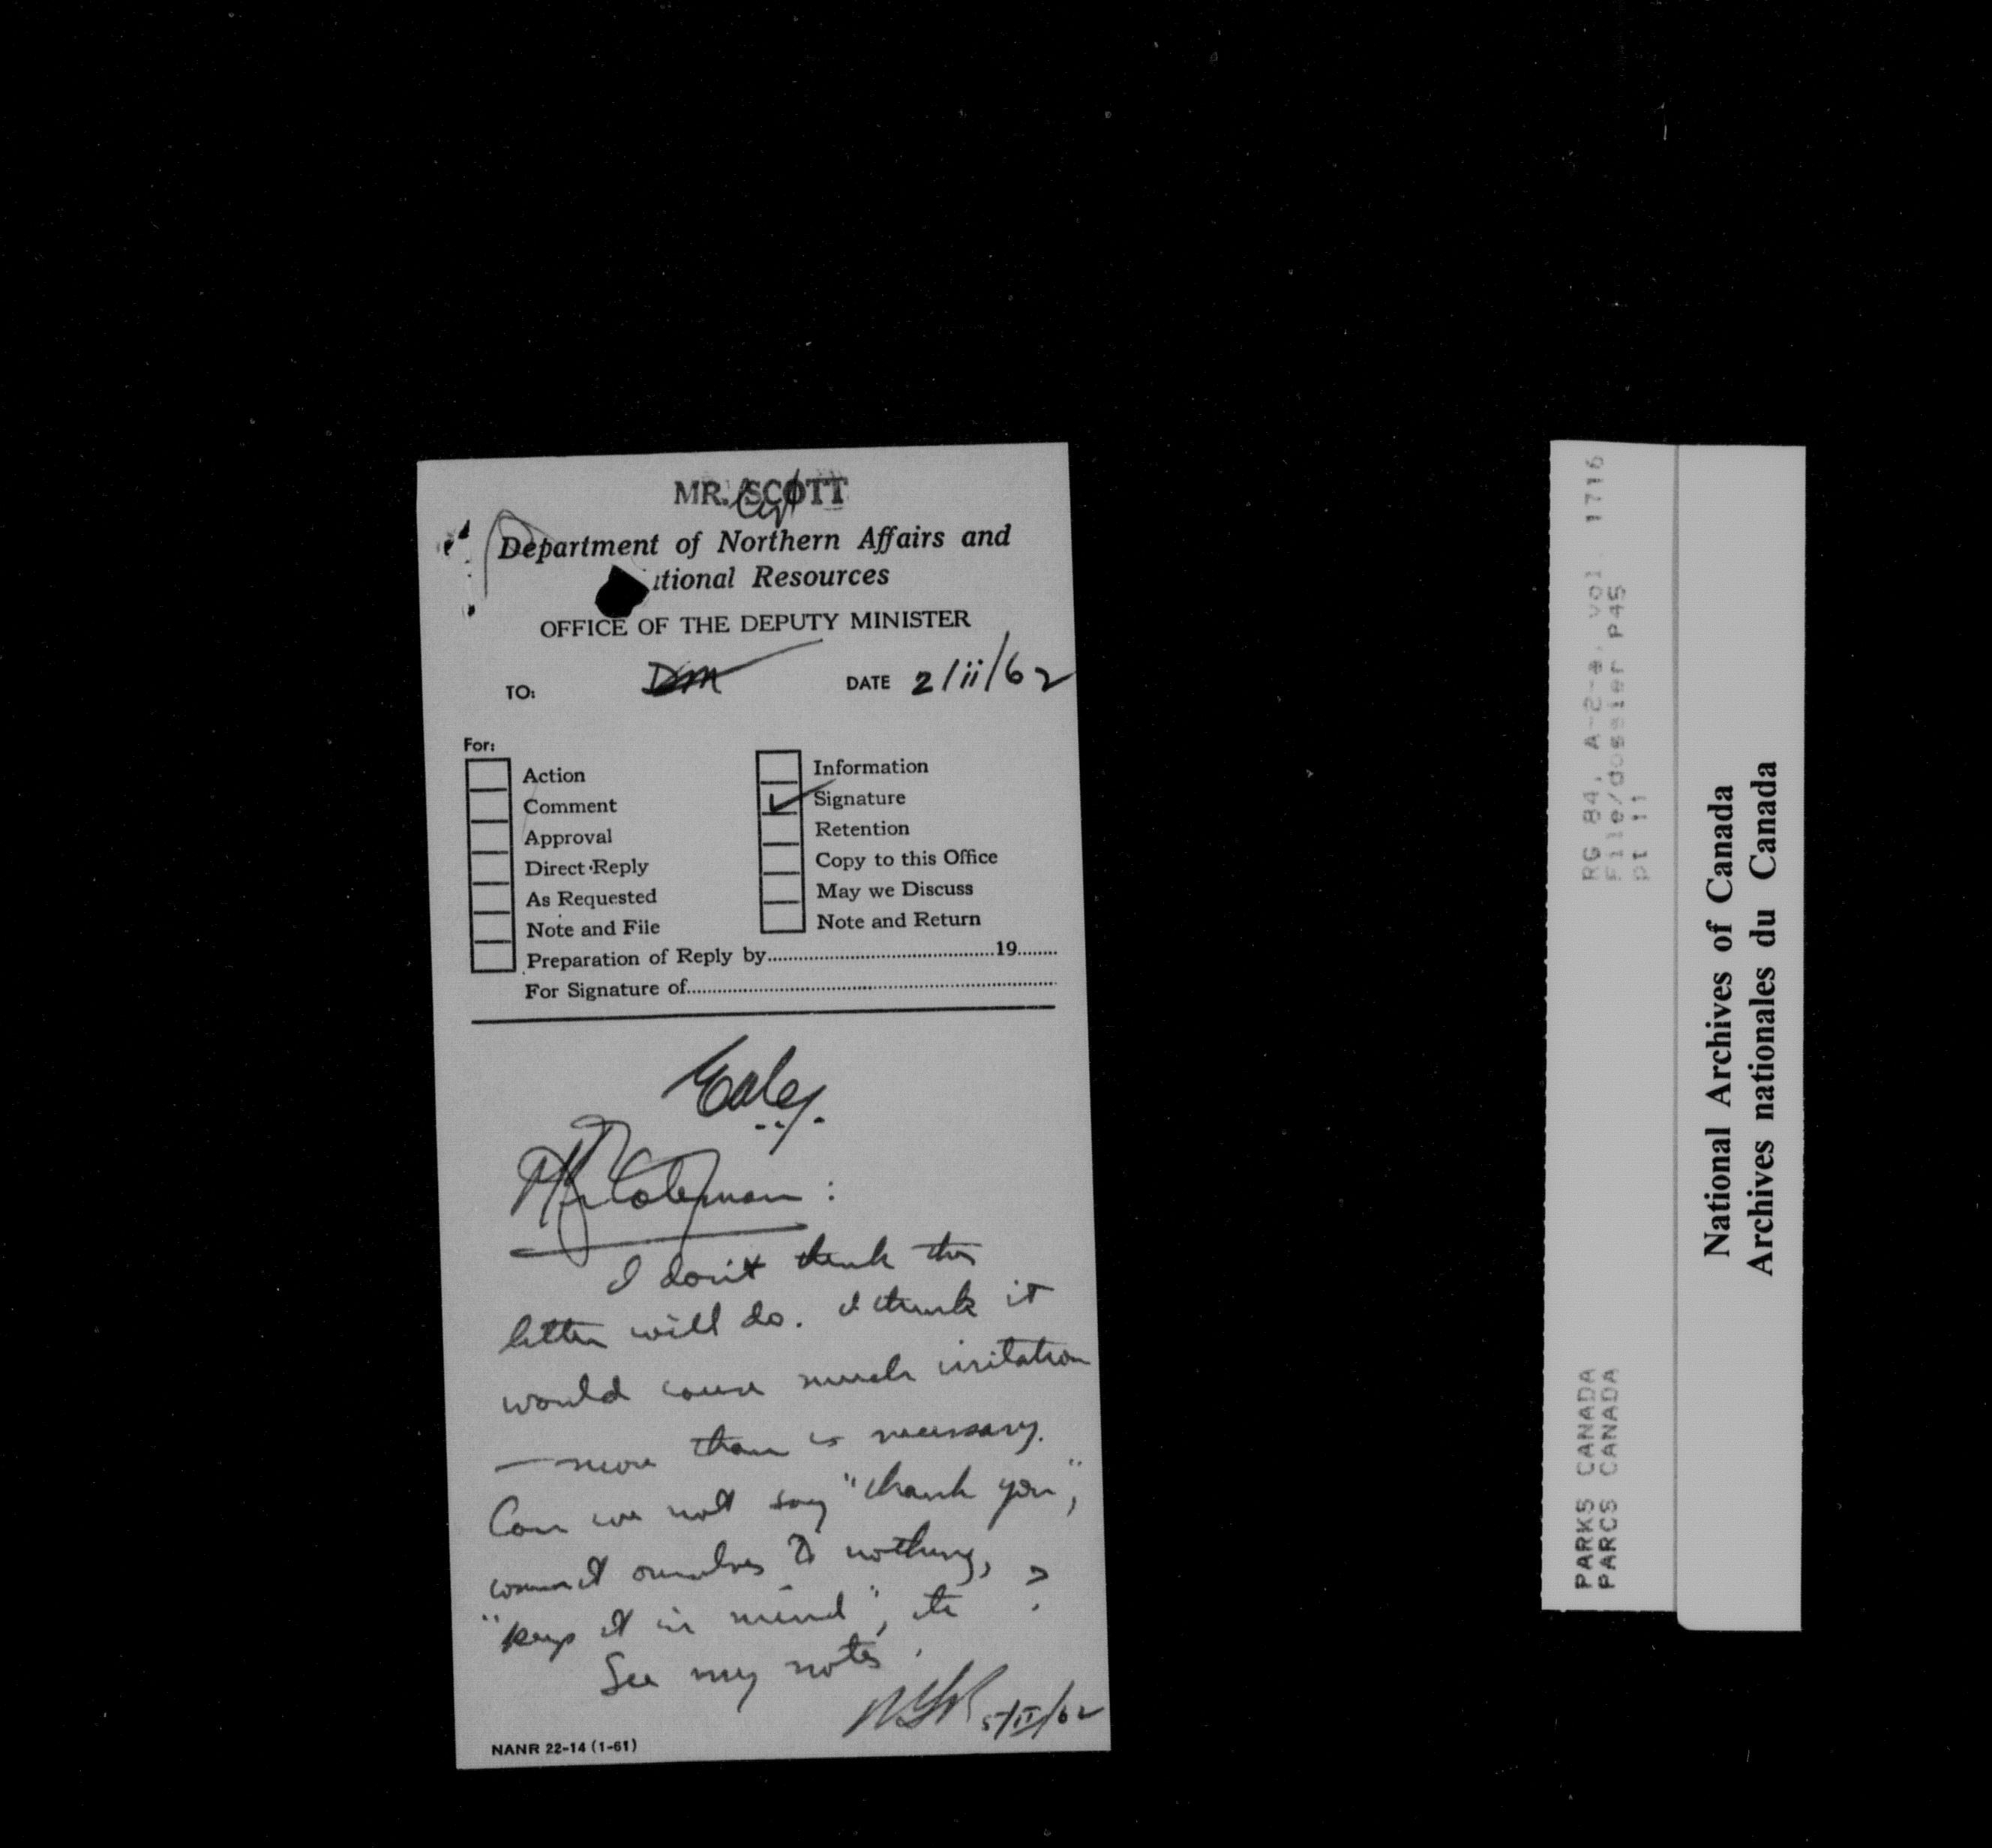 MR. SCOTT
Department of Northern Affairs and
ational Resources
OFFICE OF THE DEPUTY MINISTER
TO: DM DATE 2/ii/62
For:
Action
Comment
Approval
Direct Reply
As Requested
Note and File
Preparation of Reply by 19
For Signature of
Information
Signature
Retention
Copy to this Office
May we Discuss
Note and Return
Mr Coleman:
I don't think this
letter will do. I think it
would cause much irritation
— more than is necessary.
Can we not say "thank you",
commit ourselves to nothing,
"keep it in mind", etc ?
See my notes.
5/II/62
NANR 22-14 (1-61)
RG 84, A-2-a, vol. 1716
File/dossier P45
pt 11
PARKS CANADA
PARCS CANADA
National Archives of Canada
Archives nationales du Canada